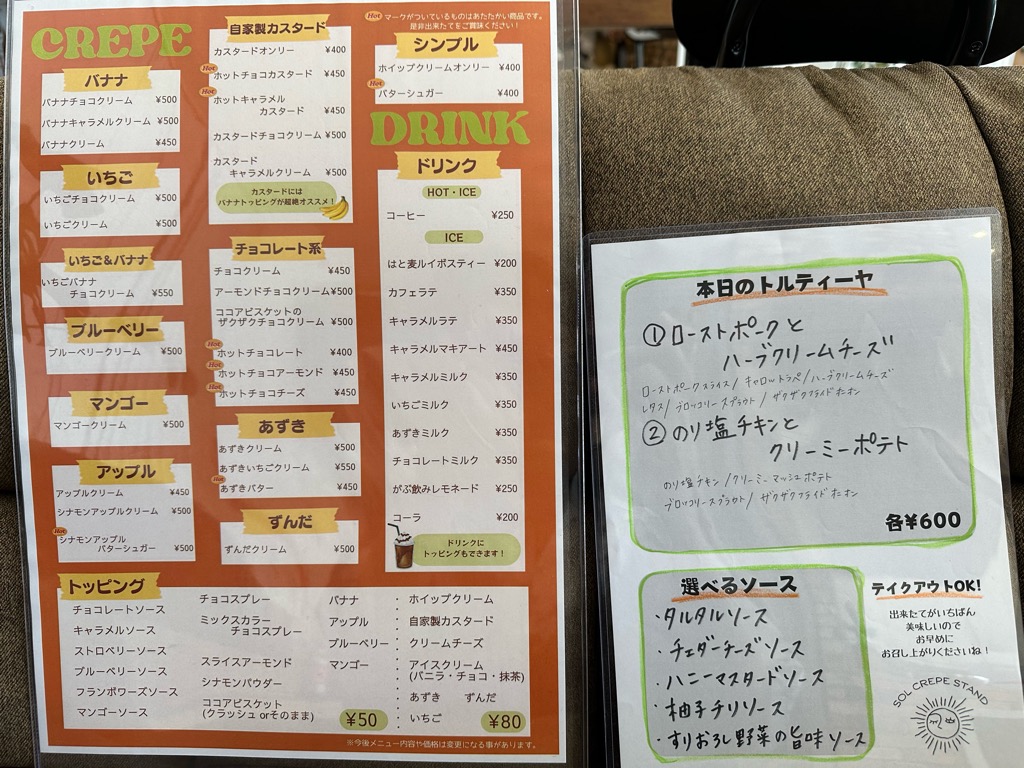 CREPE
バナナ
バナナチョコクリーム ¥500
バナナキャラメルクリーム ¥500
バナナクリーム ¥450
いちご
いちごチョコクリーム ¥500
いちごクリーム ¥500
いちご&バナナ
いちごバナナ
チョコクリーム ¥550
ブルーベリー
ブルーベリークリーム ¥500
マンゴー
マンゴークリーム ¥500
アップル
アップルクリーム ¥450
シナモンアップルクリーム ¥500
Hot
シナモンアップル
バターシュガー ¥500
自家製カスタード
カスタードオンリー ¥400
Hot
ホットチョコカスタード ¥450
Hot
ホットキャラメル
カスタード ¥450
カスタードチョコクリーム ¥500
カスタード
キャラメルクリーム ¥500
カスタードには
バナナトッピングが超絶オススメ!
チョコレート系
チョコクリーム ¥450
アーモンドチョコクリーム ¥500
ココアビスケットの
ザクザクチョコクリーム ¥500
Hot
ホットチョコレート ¥400
Hot
ホットチョコアーモンド ¥450
Hot
ホットチョコチーズ ¥450
あずき
あずきクリーム ¥500
あずきいちごクリーム ¥550
Hot
あずきバター ¥450
ずんだ
ずんだクリーム ¥500
Hot マークがついているものはあたたかい商品です。
是非出来たてをご賞味ください!
シンプル
ホイップクリームオンリー ¥400
Hot
バターシュガー ¥400
DRINK
ドリンク
HOT・ICE
コーヒー ¥250
ICE
はと麦ルイボスティー ¥200
カフェラテ ¥350
キャラメルラテ ¥350
キャラメルマキアート ¥450
キャラメルミルク ¥350
いちごミルク ¥350
あずきミルク ¥350
チョコレートミルク ¥350
がぶ飲みレモネード ¥250
コーラ ¥200
ドリンクに
トッピングもできます!
トッピング
チョコレートソース
キャラメルソース
ストロベリーソース
ブルーベリーソース
フランボワーズソース
マンゴーソース
チョコスプレー
ミックスカラー
チョコスプレー
スライスアーモンド
シナモンパウダー
ココアビスケット
(クラッシュ orそのまま)
バナナ
アップル
ブルーベリー
マンゴー
¥50
ホイップクリーム
自家製カスタード
クリームチーズ
アイスクリーム
(バニラ・チョコ・抹茶)
あずき ずんだ
いちご ¥80
※今後メニュー内容や価格は変更になる事があります。
本日のトルティーヤ
① ローストポークと
ハーブクリームチーズ
ローストポークスライス/キャロットラペ/ハーブクリームチーズ
レタス/ブロッコリースプラウト/ザクザクフライドオニオン
② のり塩チキンと
クリーミーポテト
のり塩チキン/クリーミーマッシュポテト
ブロッコリースプラウト/ザクザクフライドオニオン
各¥600
選べるソース
・タルタルソース
・チェダーチーズソース
・ハニーマスタードソース
・柚子チリソース
・すりおろし野菜の旨味ソース
テイクアウトOK!
出来たてがいちばん
美味しいので
お早めに
お召し上がりくださいね!
SOL CREPE STAND